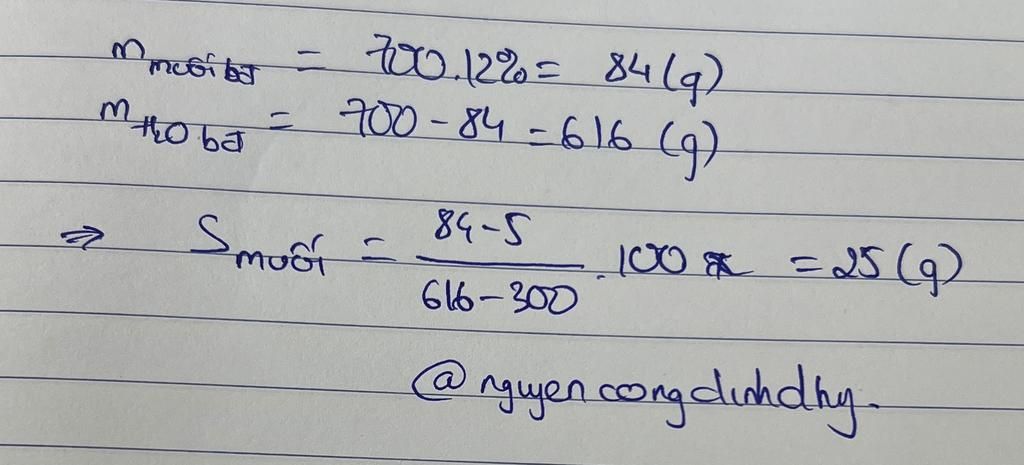 m muối bđ = 700.12% = 84 (g)
m H2O bđ = 700 - 84 = 616 (g)
⇒ S muối = \frac{84-5}{616-300} . 100 = 25 (g)
@nguyencongdinhdhy.